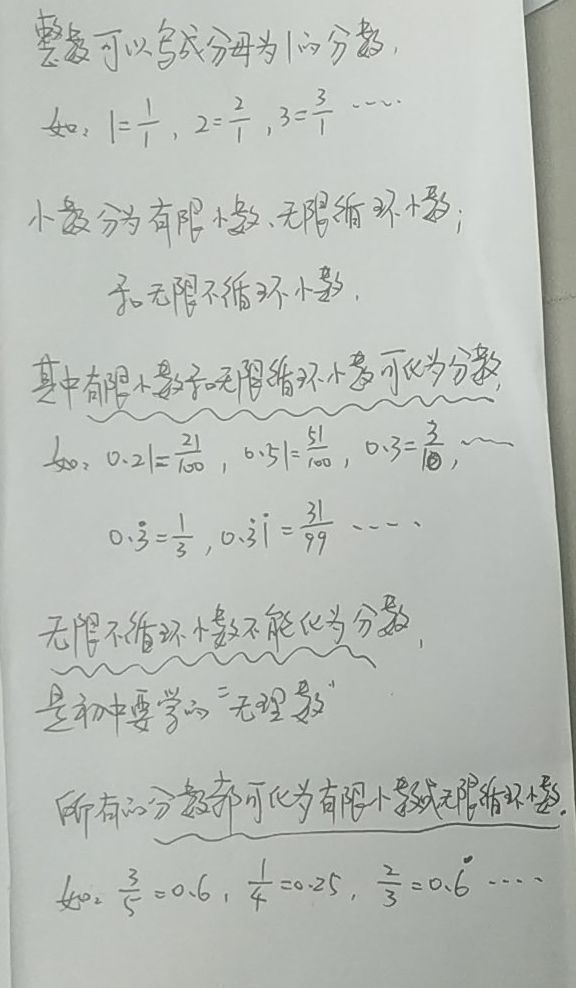 整数可以写成分母为1的分数,
如: 1=1/1, 2=2/1, 3=3/1 ……
小数分为有限小数、无限循环小数;
和无限不循环小数.
其中有限小数和无限循环小数可化为分数,
如: 0.21=21/100, 0.51=51/100, 0.3=3/10, ……
0.3̇=1/3, 0.3̇1̇=31/99 ……
无限不循环小数不能化为分数,
是初中要学的"无理数"
所有的分数都可化为有限小数或无限循环小数.
如: 3/5=0.6, 1/4=0.25, 2/3=0.6̇ ……